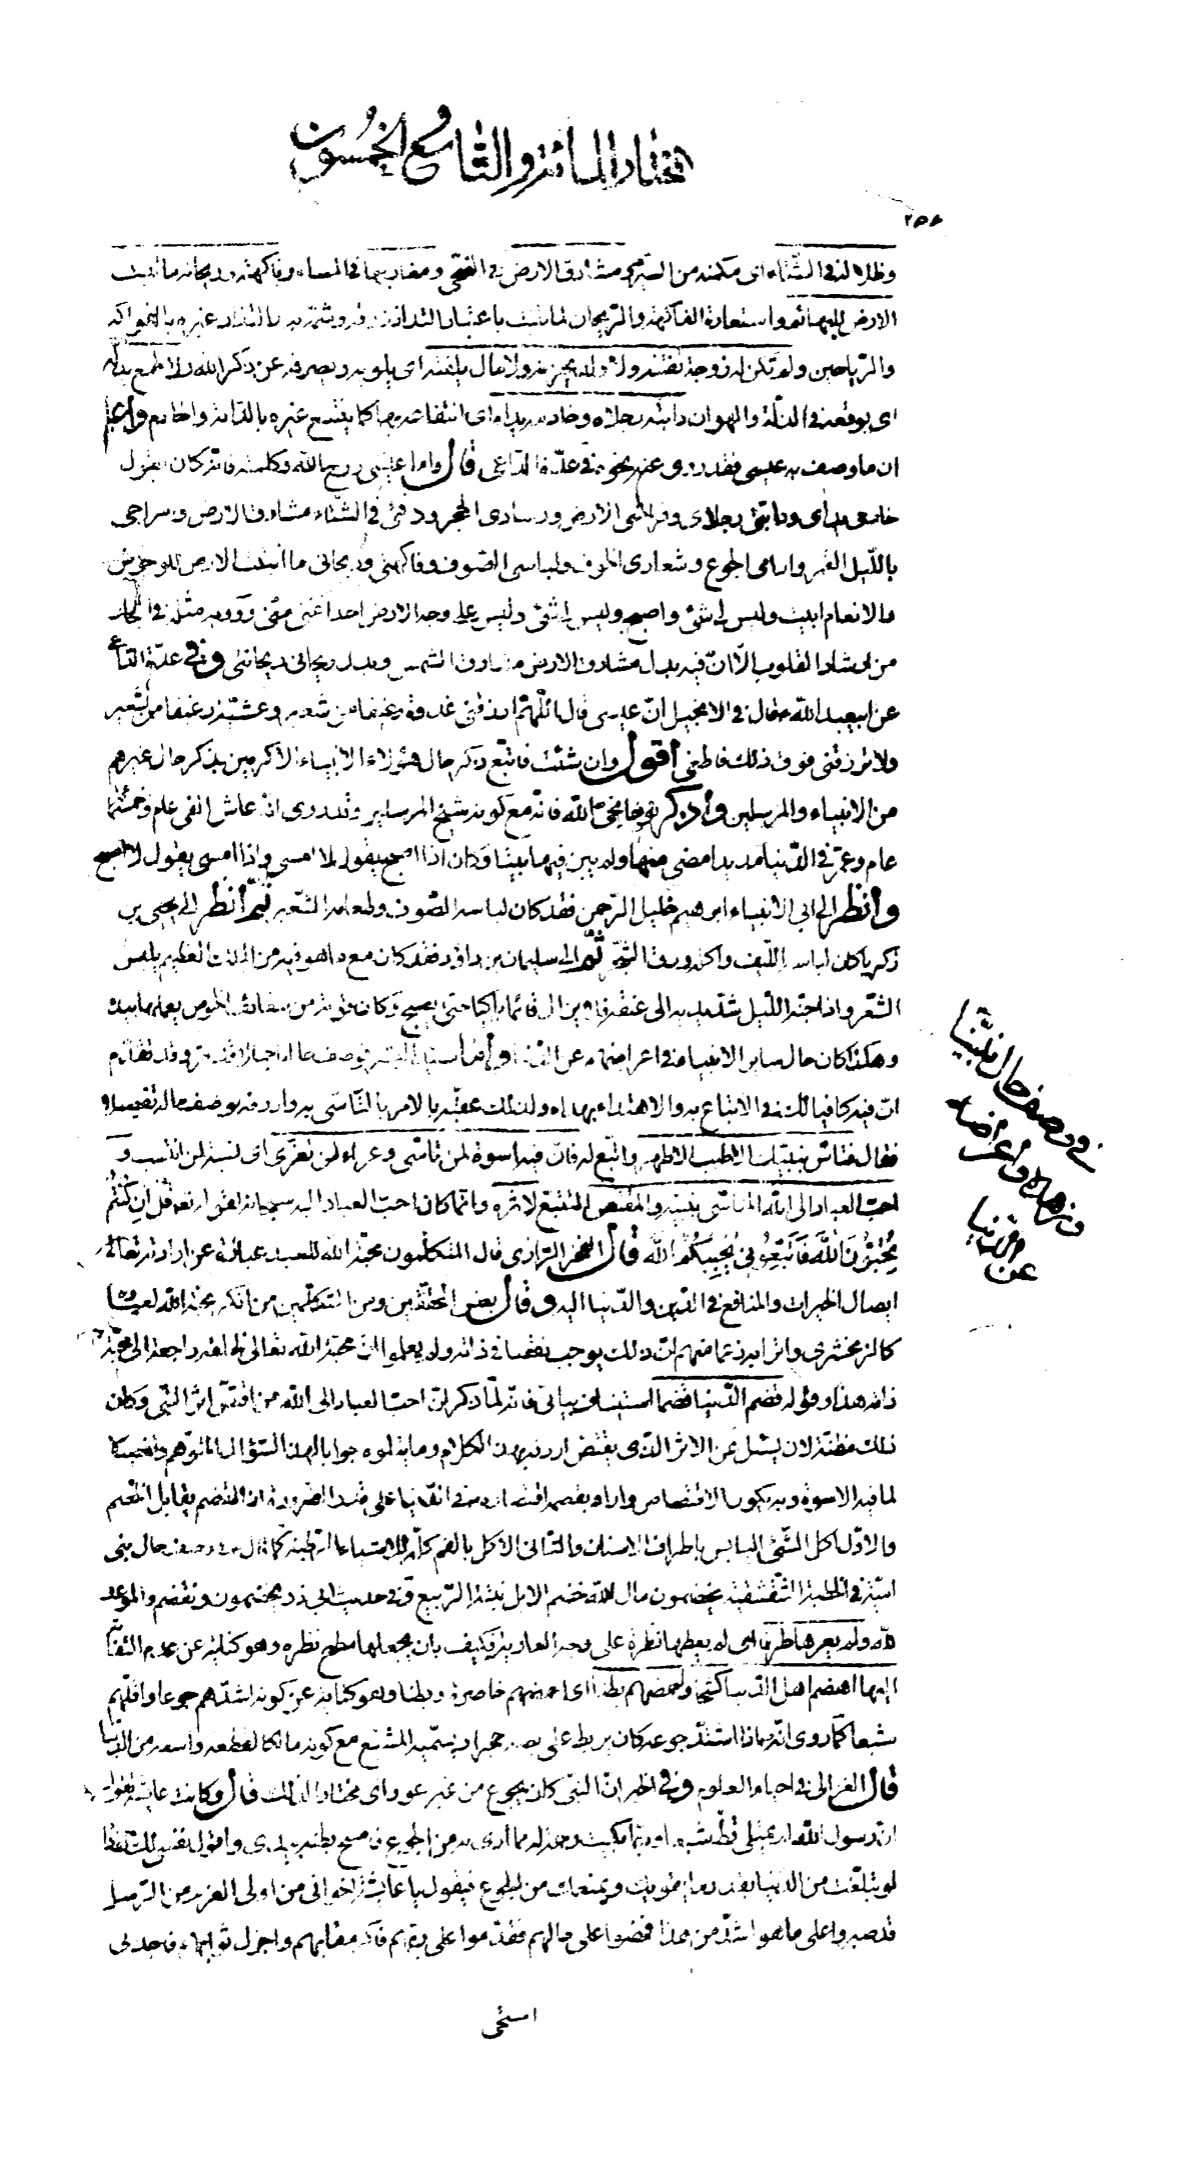 المختار المائة والتاسع والخمسون
٢٥٨
وظلاله في الشتاء اى مكمنه من البرد مشارق الارض في الضحى ومغاربها في المساء وفاكهته وريحانه ما تنبت
الارض للبهائم واستعارة الفاكهة والريحان لما تنبت باعتبار التذاذ ذوقه وشمه به التذاذ غيره بالفواكه
والرياحين ولم تكن له زوجة تفتنه ولا ولد يحزنه ولا مال يلفته اى يلويه ويصرفه عن ذكر الله ولا طمع يذله
اى يوقعه في الذلة والهوان دابته رجلاه وخادمه يداه اى انتفاعه بهما كما ينتفع غيره بالدابة والخادم واعلم
ان ما وصف به عيسى فقد روى عنه نحوه في عدة الداعى قال واما عيسى روح الله وكلمته فانه كان يقول
خادمى يداى ودابتى رجلاى وفراشى الارض ووسادى الحجر ودفئى في الشتاء مشارق الارض وسراجى
بالليل القمر وادامى الجوع وشعارى الخوف ولباسى الصوف وفاكهتى وريحانى ما انبتت الارض للوحوش
والانعام ابيت وليس لى شئ واصبح وليس لى شئ وليس على وجه الارض احد اغنى منى ورووه مثله في البحار
من ارشاد القلوب الا ان فيه بدل مشارق الارض مشارق الشمس وبدل ريحانى ريحانتى وفي عدة الداعى
عن ابيعبد الله قال في الانجيل ان عيسى قال اللهم ارزقنى غدوة رغيفا من شعير وعشية رغيفا من شعير
ولا ترزقنى فوق ذلك فاطغى اقول وان شئت فاتبع ذكر حال هؤلاء الانبياء الاكرمين بذكر حال غيرهم
من الانبياء والمرسلين واذكر نوحا نجى الله فانه مع كونه شيخ المرسلين وقد روى انه عاش الفى عام وخمسمائة
عام وعمر في الدنيا مديدا مضى منها ولم يبن فيها بيتا وكان اذا اصبح يقول لا امسى واذا امسى يقول لا اصبح
وانظر الى ابى الانبياء ابرهيم خليل الرحمن فقد كان لباسه الصوف وطعامه الشعير ثم انظر الى يحيى بن
زكريا كان لباسه الليف واكله ورق الشجر ثم الى سليمان بن داود فقد كان مع ما هو فيه من الملك العظيم يلبس
الشعر واذا جنه الليل شد يديه الى عنقه فلا يزال قائما باكيا حتى يصبح وكان قوته من سفائف الخوص يعملها بيده
وهكذا كان حال ساير الانبياء في اعراضهم عن الدنيا وانما وصف حاله اجمالا وقد تقدم
ان فيه كافيا لك في الاتباع به والاهتداء بهداه ولذلك عقبه بالامر بالتاسى به واردفه بوصف حاله تفصيلا
فقال فتاس بنبيك الاطيب الاطهر واتبع له فان فيه اسوة لمن تاسى وعزاء لمن تعزى اى نسبة لمن انتسب و
احب العباد الى الله المتاسى بنبيه والمقتص المتتبع لاثره وانما كان احب العباد اليه سبحانه لقوله تعالى قل ان كنتم
تحبون الله فاتبعونى يحببكم الله قال الفخر الرازى قال المتكلمون محبة الله للعبد عبارة عن ارادته تعالى
ايصال الخيرات والمنافع في الدين والدنيا اليه وقال بعض المحققين ومن المتكلمين من انكر محبة الله لعباده
كالزمخشرى واترابه زعما منهم ان ذلك يوجب نقصا في ذاته ولم يعلموا ان محبة الله تعالى لخلقه راجعة الى محبة
ذاته هذا وقوله قضم الدنيا قضما استيناف بيانى فانه لما ذكر ان احب العباد الى الله من اقتص اثر النبى وكان
ذلك مظنة لان يسئل عن الاثر الذى يقتص اردفه بهذا الكلام وما يتلوه جوابا لهذا السؤال المتوهم وتفصيلا
لما فيه الاسوة وبه يكون الاقتصاص واراد بقضمه اقتصاره في الدنيا على قدر الضرورة اذ القضم يقابل الخضم
والاول اكل الشئ اليابس باطراف الاسنان والثانى الاكل بالفم كله للاشياء الرطبة كما قال في وصف حال بنى
امية في الخطبة الشقشقية يخضمون مال الله خضم الابل نبتة الربيع وفي حديث ابى ذر يخضمون ونقضم والموعد
لله ولم يعرها طرفا اى لم يعطها نظرة على وجه العارية فكيف بان يجعلها مطمح نظره وهو كناية عن عدم التفاته
اليها اهضم اهل الدنيا كشحا واخمصهم بطنا اى اخمصهم خاصرة وبطنا وهو كناية عن كونه اشدهم جوعا واقلهم
شبعا كما روى انه اذا اشتد جوعه كان يربط على بطنه حجرا ويسميه المشبع مع كونه مالكا لقطعة واسعة من الدنيا
قال الغزالى في احياء العلوم وفي الخبر ان النبى كان يجوع من غير عوز اى مختارا لذلك قال وكانت عايشة تقول
ان رسول الله لم يمتلى قط شبعا وربما بكيت رحمة له مما ارى به من الجوع فامسح بطنه بيدى واقول نفسى لك الفدا
لو تبلغت من الدنيا بقدر ما يقويك ويمنعك من الجوع فيقول يا عايشة اخوانى من اولى العزم من الرسل
قد صبروا على ما هو اشد من هذا فمضوا على حالهم فقدموا على ربهم فاكرم مابهم واجزل ثوابهم فاجدنى
استحى
في وصف حال نبينا
وزهده واعراضه
عن الدنيا